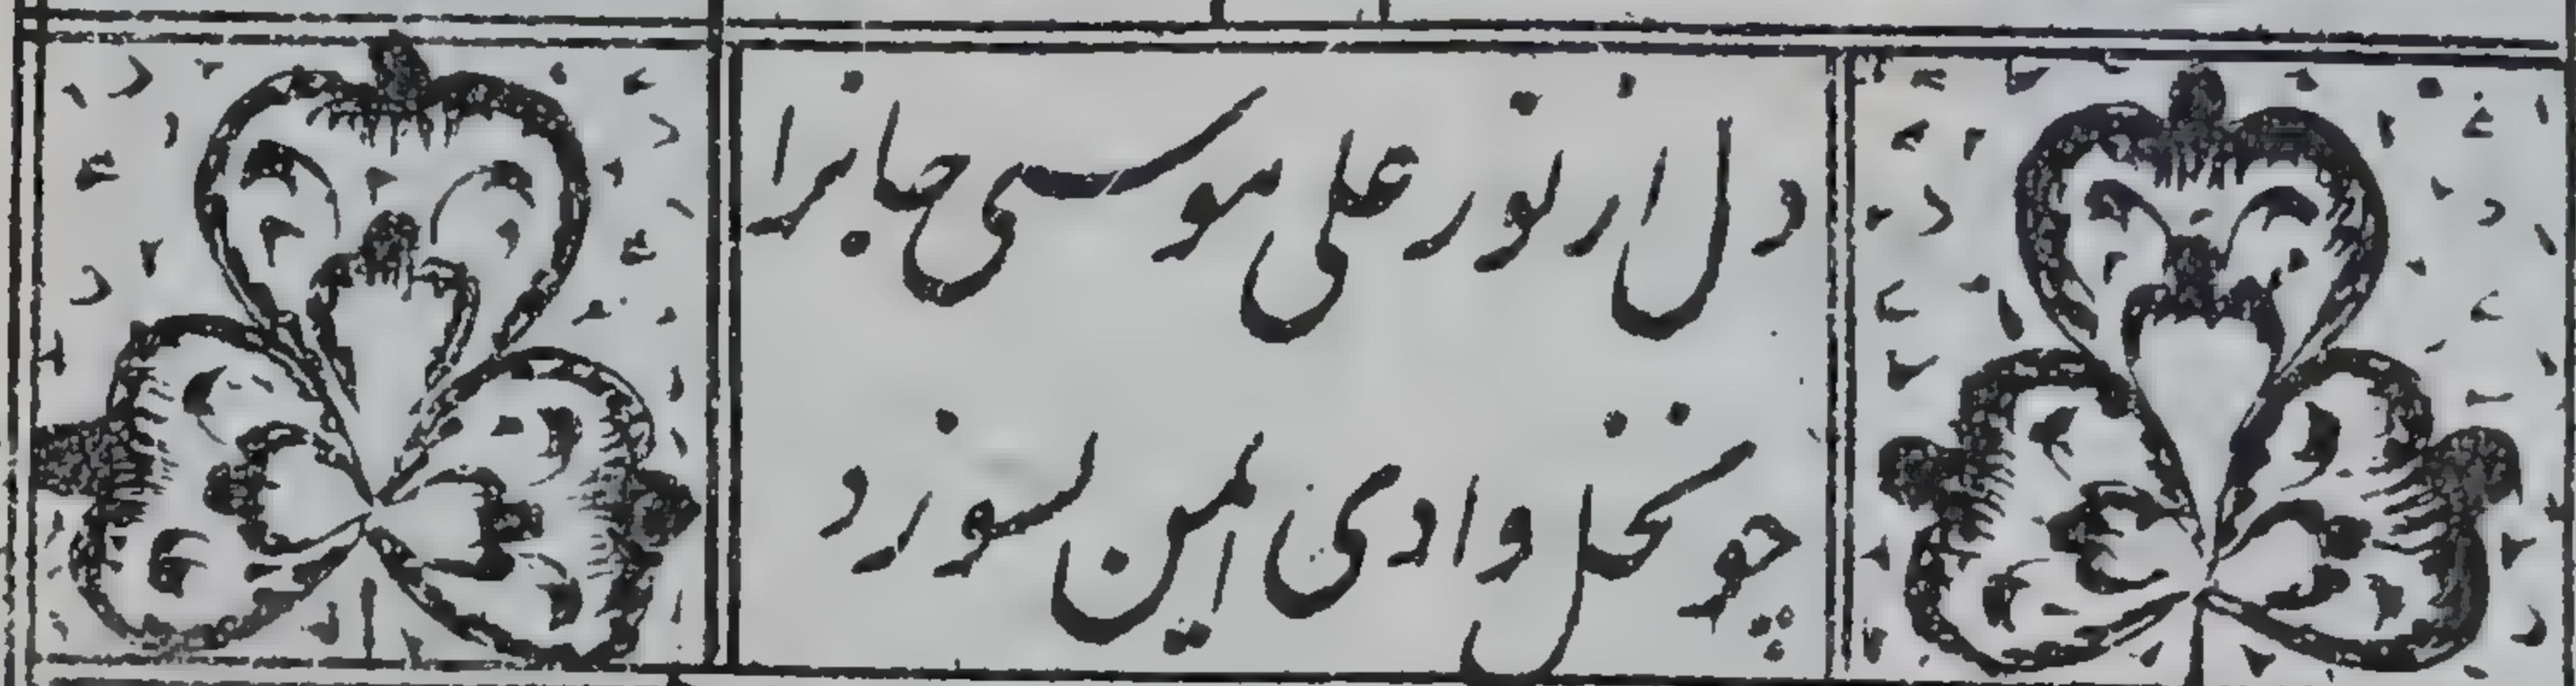 دل از نور علی موسی جانرا
چو نخل وادی ایمن بسوزد